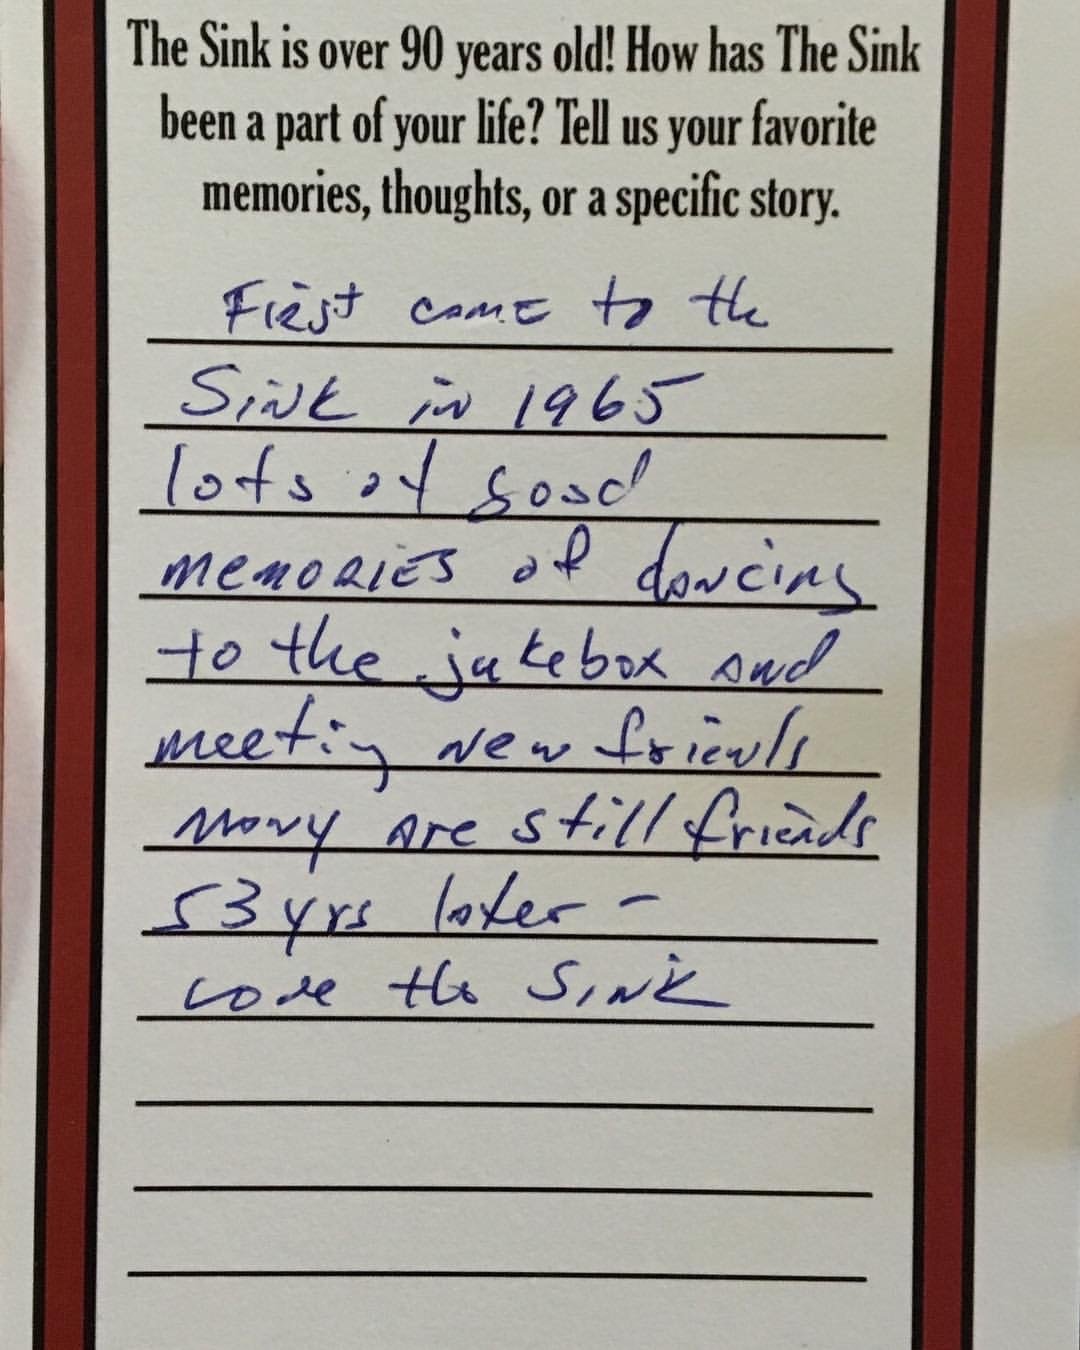 The Sink is over 90 years old! How has The Sink
been a part of your life? Tell us your favorite
memories, thoughts, or a specific story.
First came to the
Sink in 1965
lots of good
memories of dancing
to the jukebox and
meeting new friends
many are still friends
53 yrs later -
Love the Sink